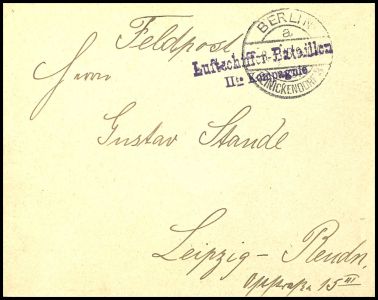 Feldpost
BERLIN
a.
Luftschiffer-Bataillon
IIte Kompagnie
REINICKENDORF
Herrn
Gustav Stande
Leipzig - Reudn.
15 III